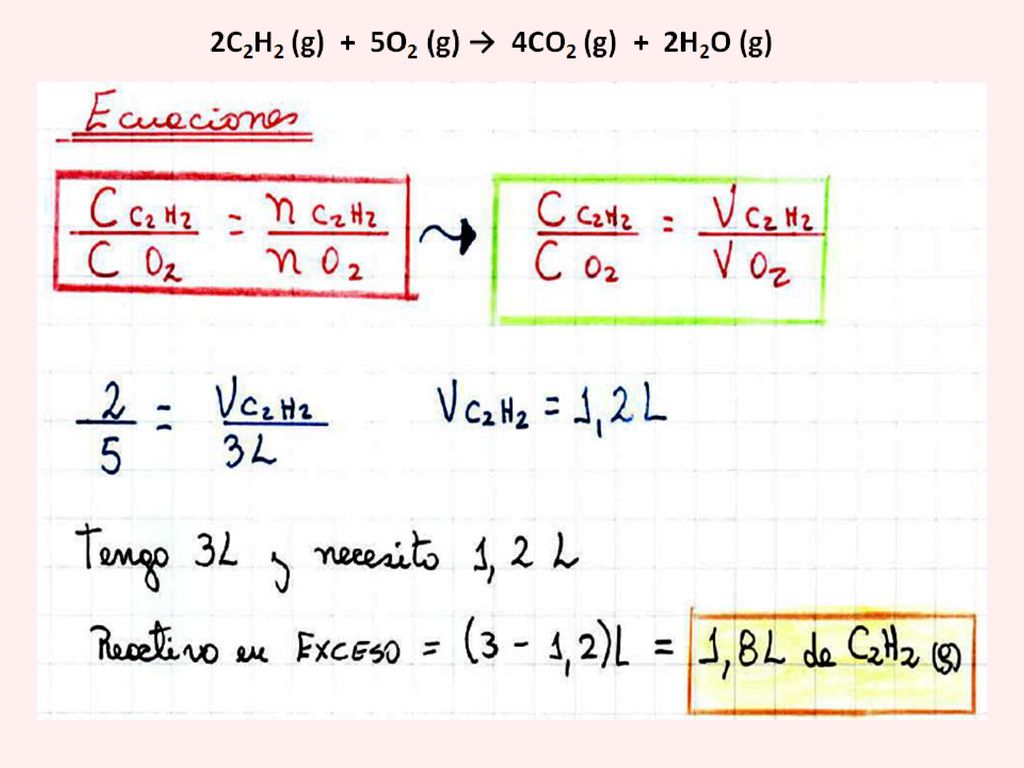 2C₂H₂ (g) + 5O₂ (g) → 4CO₂ (g) + 2H₂O (g)
Ecuaciones
C C₂H₂ / C O₂ = n C₂H₂ / n O₂ ⇝ C C₂H₂ / C O₂ = V C₂H₂ / V O₂
2 / 5 = V C₂H₂ / 3L V C₂H₂ = 1,2L
Tengo 3L y necesito 1,2 L
Reactivo en EXCESO = (3 - 1,2)L = 1,8L de C₂H₂ (g)